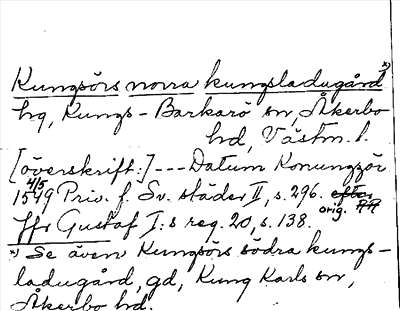 Kungsörs norra kungsladugård *)
hg, Kungs-Barkarö sn, Åkerbo
hd, Västm. l.
[överskrift:] --- Datum Konungzör
4/5
1549 Priv. f. Sv. städer II, s. 296. efter
orig. RA
ffr Gustaf I:s reg. 20, s. 138.
*) Se även Kungsörs södra kungs-
ladugård, gd, Kung Karls sn,
Åkerbo hd.